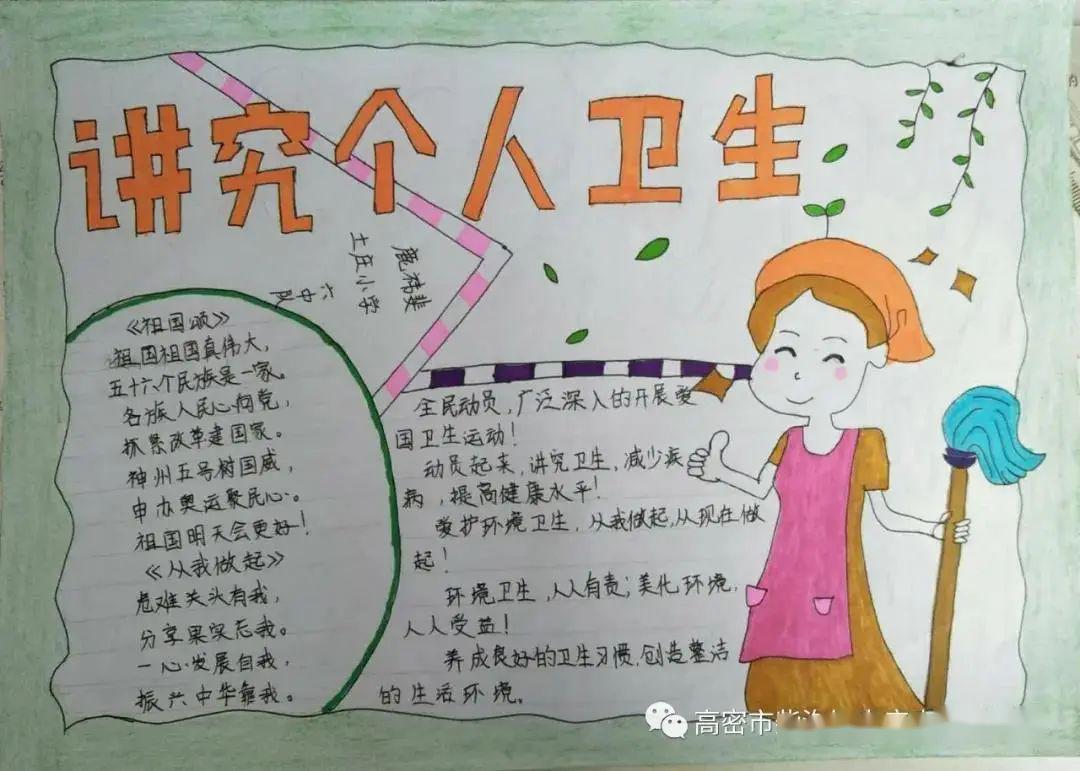 讲究个人卫生
鹿祎斐
土庄小学
六中队
《祖国颂》
祖国祖国真伟大，
五十六个民族是一家。
各族人民心向党，
抓紧改革建国家。
神州五号树国威，
申办奥运聚民心。
祖国明天会更好！
《从我做起》
危难关头有我，
分享果实忘我。
一心发展自我，
振兴中华靠我。
全民动员，广泛深入的开展爱
国卫生运动！
动员起来，讲究卫生，减少疾
病，提高健康水平！
爱护环境卫生，从我做起，从现在做
起！
环境卫生，人人有责；美化环境，
人人受益！
养成良好的卫生习惯，创造整洁
的生活环境。
高密市